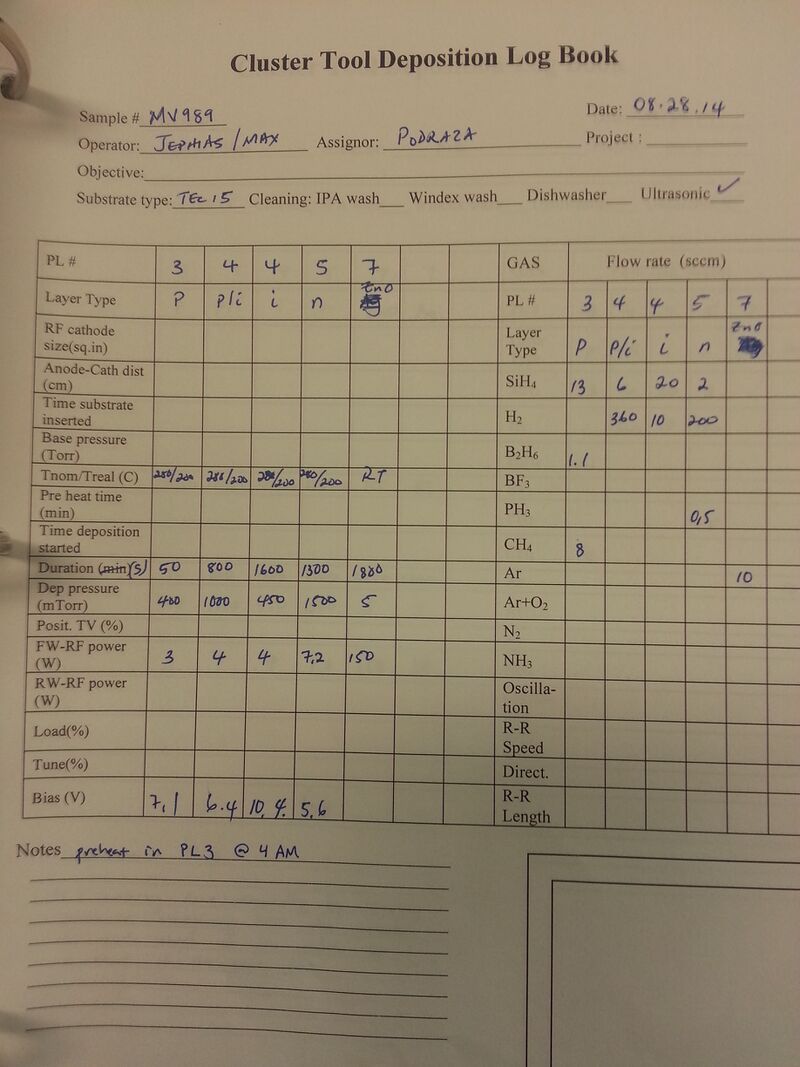 Cluster Tool Deposition Log Book
Sample # MV989 Date: 08.28.14
Operator: JEPHIAS / MAX Assignor: PODRAZA Project :
Objective:
Substrate type: TEC 15 Cleaning: IPA wash Windex wash Dishwasher Ultrasonic ✓
PL # 3 4 4 5 7
Layer Type P P/i i n ZnO
RF cathode size(sq.in)
Anode-Cath dist (cm)
Time substrate inserted
Base pressure (Torr)
Tnom/Treal (C) /200 /200 /200 /200 RT
Pre heat time (min)
Time deposition started
Duration (min)(s) 50 800 1600 1300 1800
Dep pressure (mTorr) 400 1000 450 1500 5
Posit. TV (%)
FW-RF power (W) 3 4 4 7,2 150
RW-RF power (W)
Load(%)
Tune(%)
Bias (V) 7,1 6.4 10,4. 5,6
GAS Flow rate (sccm)
PL # 3 4 4 5 7
Layer Type P P/i i n ZnO
SiH₄ 13 6 20 2
H₂ 360 10 200
B₂H₆ 1.1
BF₃
PH₃ 0,5
CH₄ 8
Ar 10
Ar+O₂
N₂
NH₃
Oscilla-
tion
R-R
Speed
Direct.
R-R
Length
Notes preheat in PL3 @ 4 AM